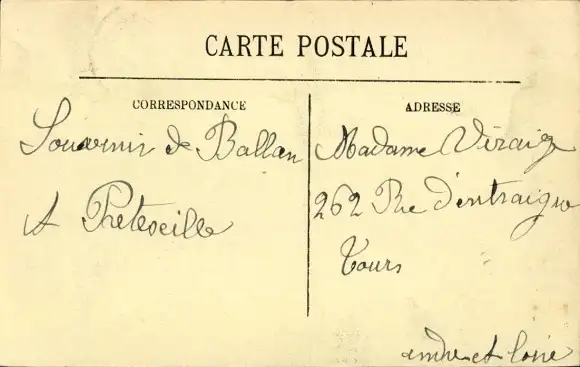 CARTE POSTALE
CORRESPONDANCE
Souvenir de Ballan
A Preteseille
ADRESSE
Madame Viraig
262 Rue d'entraigue
Tours
indre et loire